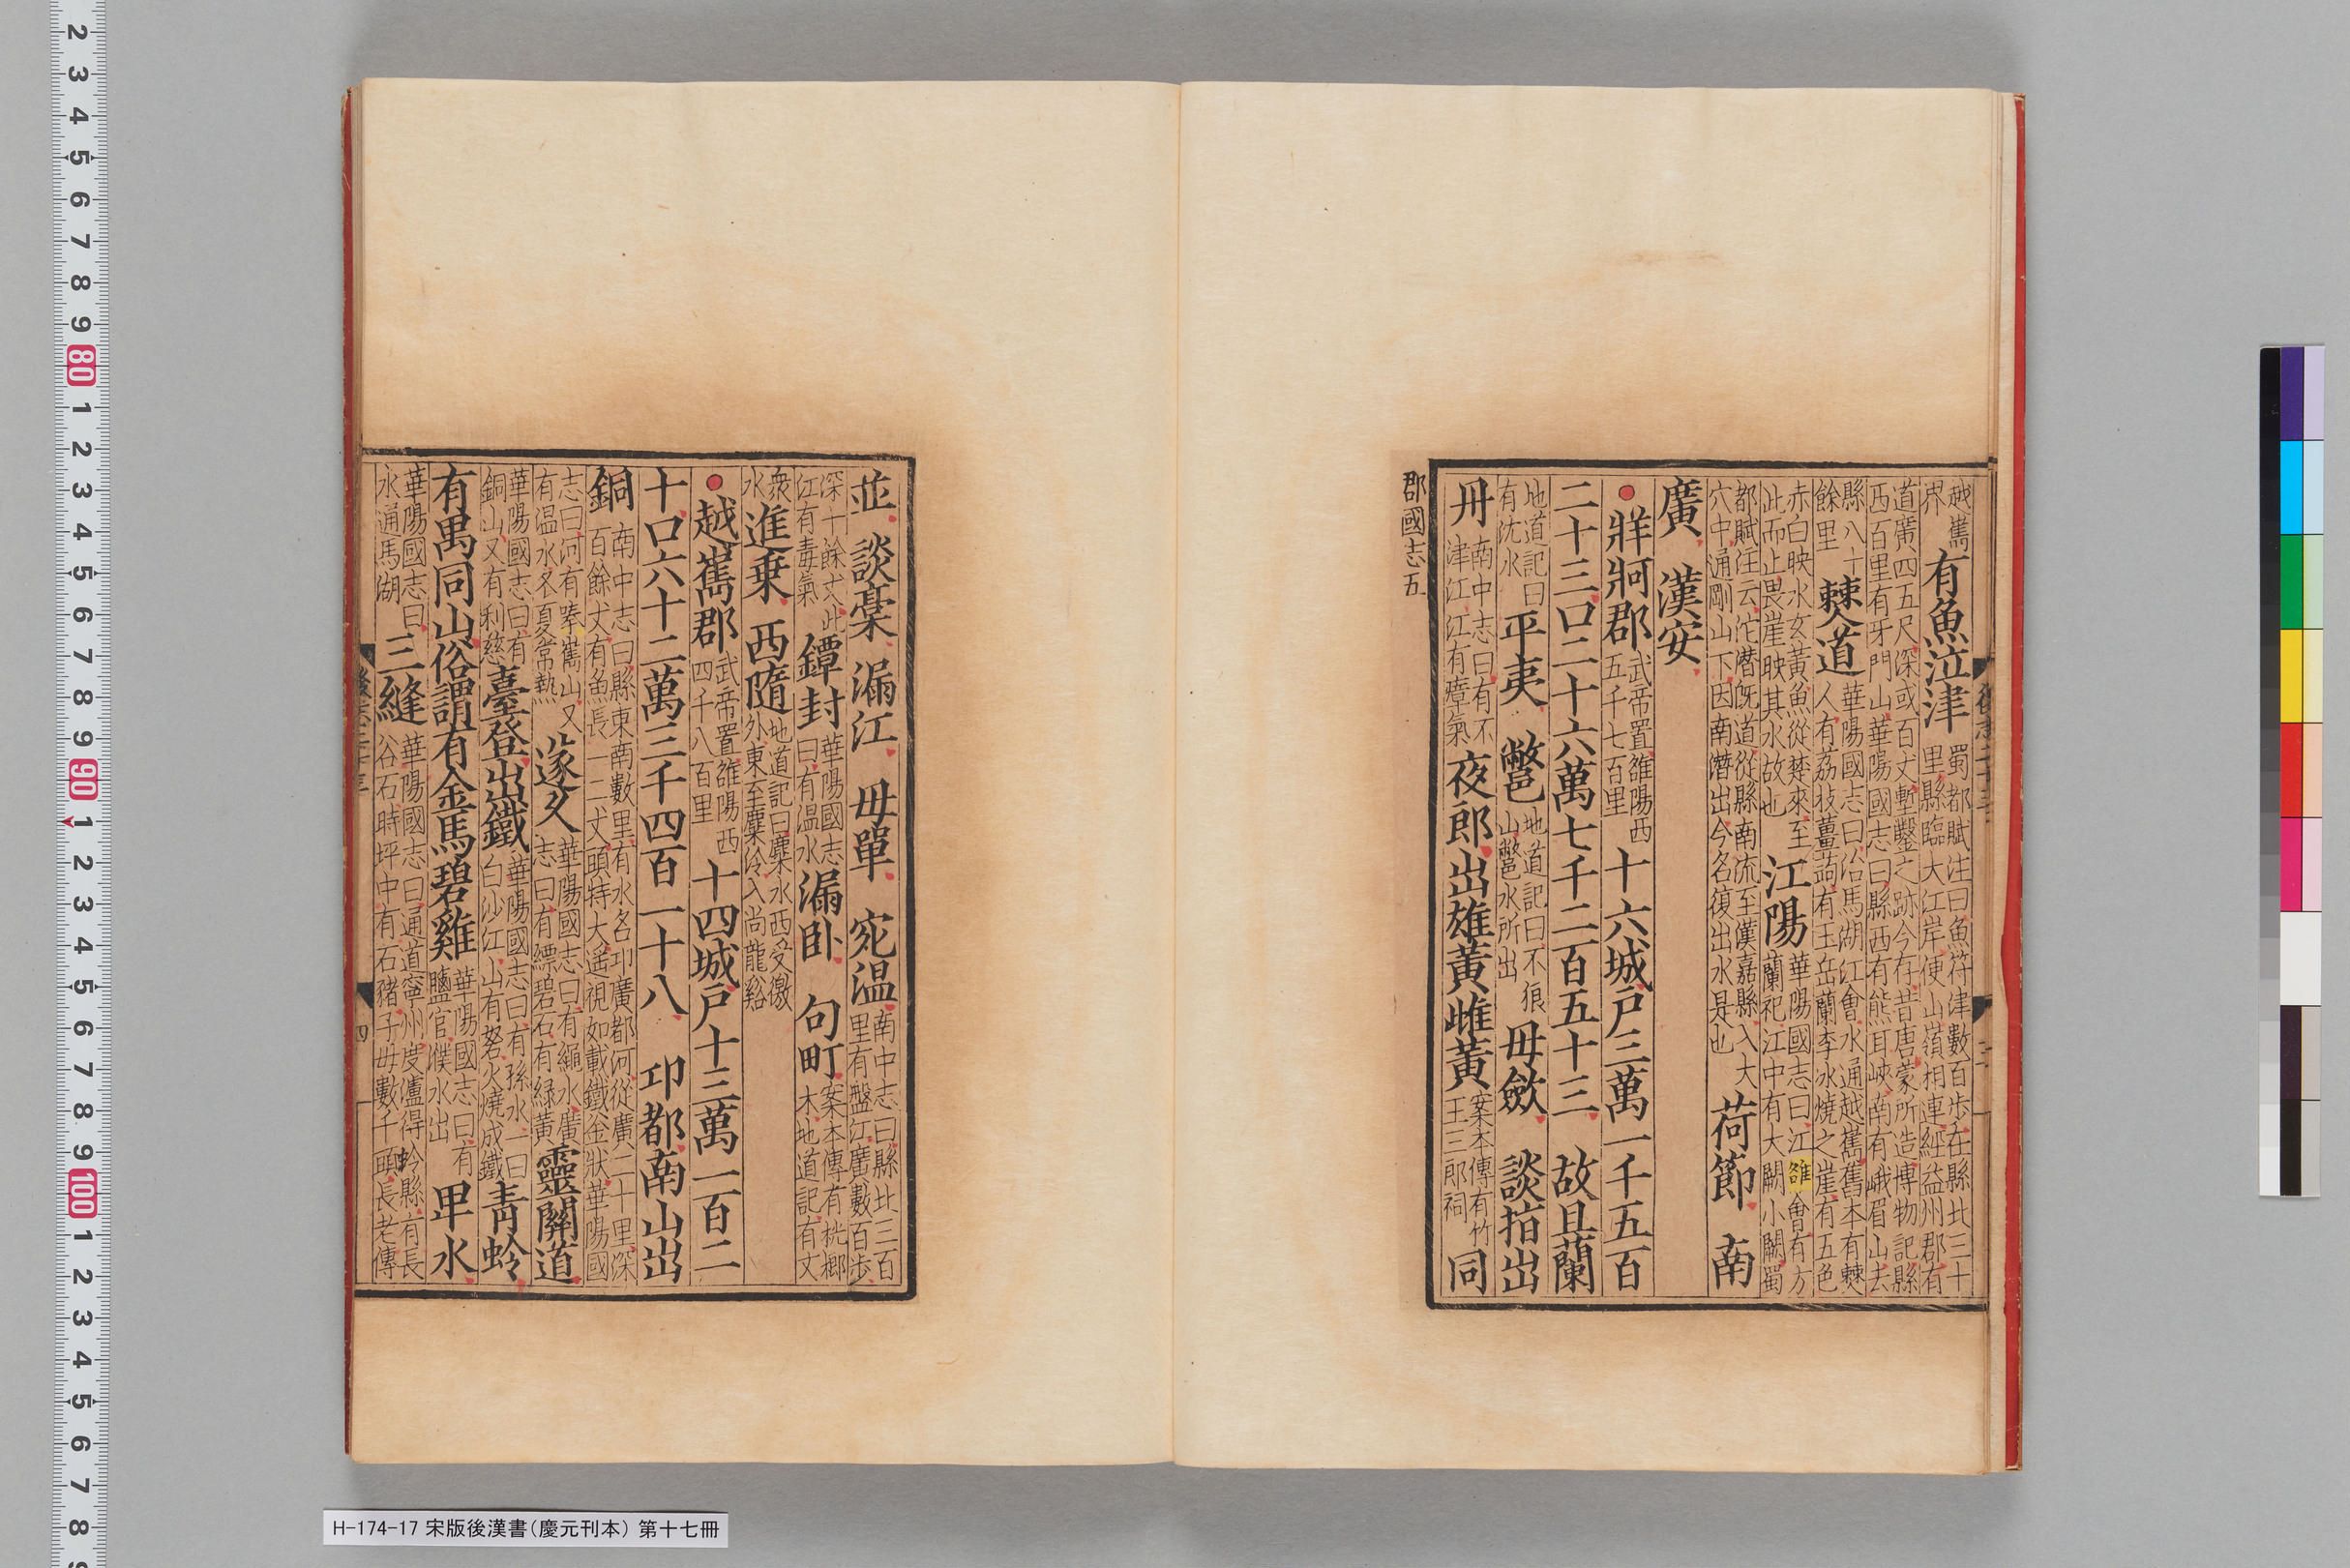 越巂界有魚泣津蜀都賦注曰魚符津數百步在縣北三十里縣臨大江岸便山嶺相連經益州郡有
道廣四五尺深或百丈塹鑿之跡今存昔唐蒙所造博物記縣西百里有牙門山華陽國志曰縣西有熊耳峽南有峨眉山去
縣八十餘里僰道華陽國志曰治馬湖江會水通越巂舊本有僰人有荔枝薑蒟有王岳蘭李冰燒之崖有五色
赤白映水玄黃魚從僰來至此而止畏崖映其水故也江陽華陽國志曰江雒會有方蘭祀江中有大闕小闕蜀
都賦注云沱潛旣道從縣南流至漢嘉縣入大穴中通剛山下因南潛出今名復出水是也荷節 南
廣 漢安
牂牁郡武帝置雒陽西五千七百里十六城戶三萬一千五百
二十三口二十六萬七千二百五十三 故且蘭
地道記曰有沈水平夷 鄨地道記曰不狼山鄨水所出毋斂 談指出
丹南中志曰有不津江江有瘴氣夜郎出雄黃雌黃案本傳有竹王三郎祠同
郡國志五
並 談槀 漏江 毋單 宛温南中志曰縣北三百里有盤江廣數百步
深十餘丈此江有毒氣鐔封華陽國志曰有温水漏卧 句町案本傳有桄榔木地道記有文
衆水進乗 西隨地道記曰麋水西受徼外東至麋泠入尚龍谿
越巂郡武帝置雒陽西四千八百里十四城戶十三萬一百二
十口六十二萬三千四百一十八 邛都南山出
銅南中志曰縣東南數里有水名邛廣都河從廣二十里深百餘丈有魚長一二丈頭特大遥視如載鐵釜狀華陽國
志曰河有巂山又有温水冬夏常熱遂久華陽國志曰有繩水廣志曰有縹碧石有緑黃靈關道
華陽國志曰有銅山又有利慈臺登出鐵華陽國志曰有孫水一曰白沙江山有砮火燒成鐵青蛉
有禺同山俗謂有金馬碧雞華陽國志曰有鹽官濮水出卑水
華陽國志曰水通馬湖三縫華陽國志曰通道寧州度瀘得蛉縣有長谷石時坪中有石豬子毋數千頭長老傳
四
H-174-17 宋版後漢書(慶元刊本) 第十七冊